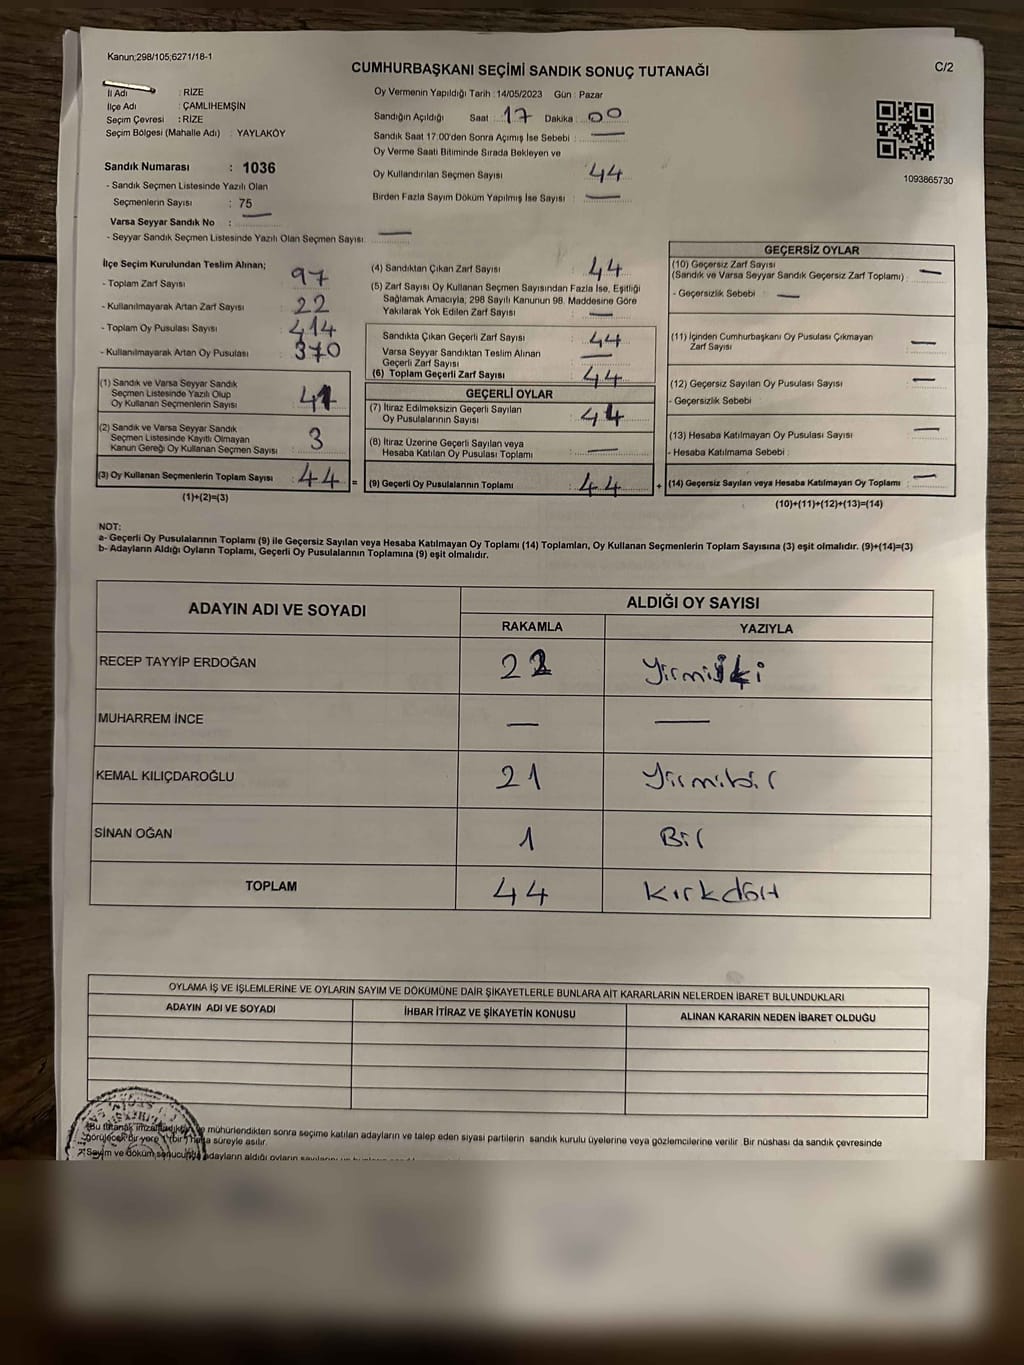 Kanun;298/105;6271/18-1
CUMHURBAŞKANI SEÇİMİ SANDIK SONUÇ TUTANAĞI
C/2
İl Adı : RİZE
İlçe Adı : ÇAMLIHEMŞİN
Seçim Çevresi : RİZE
Seçim Bölgesi (Mahalle Adı) : YAYLAKÖY
Sandık Numarası : 1036
- Sandık Seçmen Listesinde Yazılı Olan
Seçmenlerin Sayısı : 75
Varsa Seyyar Sandık No : —
- Seyyar Sandık Seçmen Listesinde Yazılı Olan Seçmen Sayısı —
Oy Vermenin Yapıldığı Tarih : 14/05/2023 Gün : Pazar
Sandığın Açıldığı Saat 17 Dakika 00
Sandık Saat 17:00'den Sonra Açımış İse Sebebi : —
Oy Verme Saati Bitiminde Sırada Bekleyen ve
Oy Kullandırılan Seçmen Sayısı 44
Birden Fazla Sayım Döküm Yapılmış İse Sayısı : —
1093865730
İlçe Seçim Kurulundan Teslim Alınan;
- Toplam Zarf Sayısı 97
- Kullanılmayarak Artan Zarf Sayısı 22
- Toplam Oy Pusulası Sayısı 414
- Kullanılmayarak Artan Oy Pusulası 370
(1) Sandık ve Varsa Seyyar Sandık
Seçmen Listesinde Yazılı Olup
Oy Kullanan Seçmenlerin Sayısı 41
(2) Sandık ve Varsa Seyyar Sandık
Seçmen Listesinde Kayıtlı Olmayan
Kanun Gereği Oy Kullanan Seçmen Sayısı 3
(3) Oy Kullanan Seçmenlerin Toplam Sayısı : 44 =
(1)+(2)=(3)
(4) Sandıktan Çıkan Zarf Sayısı 44
(5) Zarf Sayısı Oy Kullanan Seçmen Sayısından Fazla İse, Eşitliği
Sağlamak Amacıyla; 298 Sayılı Kanunun 98. Maddesine Göre
Yakılarak Yok Edilen Zarf Sayısı : —
Sandıkta Çıkan Geçerli Zarf Sayısı 44
Varsa Seyyar Sandıktan Teslim Alınan
Geçerli Zarf Sayısı —
(6) Toplam Geçerli Zarf Sayısı 44
GEÇERLİ OYLAR
(7) İtiraz Edilmeksizin Geçerli Sayılan
Oy Pusulalarının Sayısı : 44
(8) İtiraz Üzerine Geçerli Sayılan veya
Hesaba Katılan Oy Pusulası Toplamı —
(9) Geçerli Oy Pusulalarının Toplamı : 44 +
GEÇERSİZ OYLAR
(10) Geçersiz Zarf Sayısı
(Sandık ve Varsa Seyyar Sandık Geçersiz Zarf Toplamı) : —
- Geçersizlik Sebebi : —
(11) İçinden Cumhurbaşkanı Oy Pusulası Çıkmayan
Zarf Sayısı —
(12) Geçersiz Sayılan Oy Pusulası Sayısı —
- Geçersizlik Sebebi
(13) Hesaba Katılmayan Oy Pusulası Sayısı —
- Hesaba Katılmama Sebebi :
(14) Geçersiz Sayılan veya Hesaba Katılmayan Oy Toplamı : —
(10)+(11)+(12)+(13)=(14)
NOT:
a- Geçerli Oy Pusulalarının Toplamı (9) ile Geçersiz Sayılan veya Hesaba Katılmayan Oy Toplamı (14) Toplamları, Oy Kullanan Seçmenlerin Toplam Sayısına (3) eşit olmalıdır. (9)+(14)=(3)
b- Adayların Aldığı Oyların Toplamı, Geçerli Oy Pusulalarının Toplamına (9) eşit olmalıdır.
ADAYIN ADI VE SOYADI
ALDIĞI OY SAYISI
RAKAMLA YAZIYLA
RECEP TAYYİP ERDOĞAN 22 Yirmiiki
MUHARREM İNCE — —
KEMAL KILIÇDAROĞLU 21 Yirmibir
SİNAN OĞAN 1 Bir
TOPLAM 44 Kırkdört
OYLAMA İŞ VE İŞLEMLERİNE VE OYLARIN SAYIM VE DÖKÜMÜNE DAİR ŞİKAYETLERLE BUNLARA AİT KARARLARIN NELERDEN İBARET BULUNDUKLARI
ADAYIN ADI VE SOYADI İHBAR İTİRAZ VE ŞİKAYETİN KONUSU ALINAN KARARIN NEDEN İBARET OLDUĞU
(Bu tutanak imzalandıktan ve mühürlendikten sonra seçime katılan adayların ve talep eden siyasi partilerin sandık kurulu üyelerine veya gözlemcilerine verilir Bir nüshası da sandık çevresinde
görülecek bir yere 1 (bir) hafta süreyle asılır.
Sayım ve döküm sonucunda adayların aldığı oyların